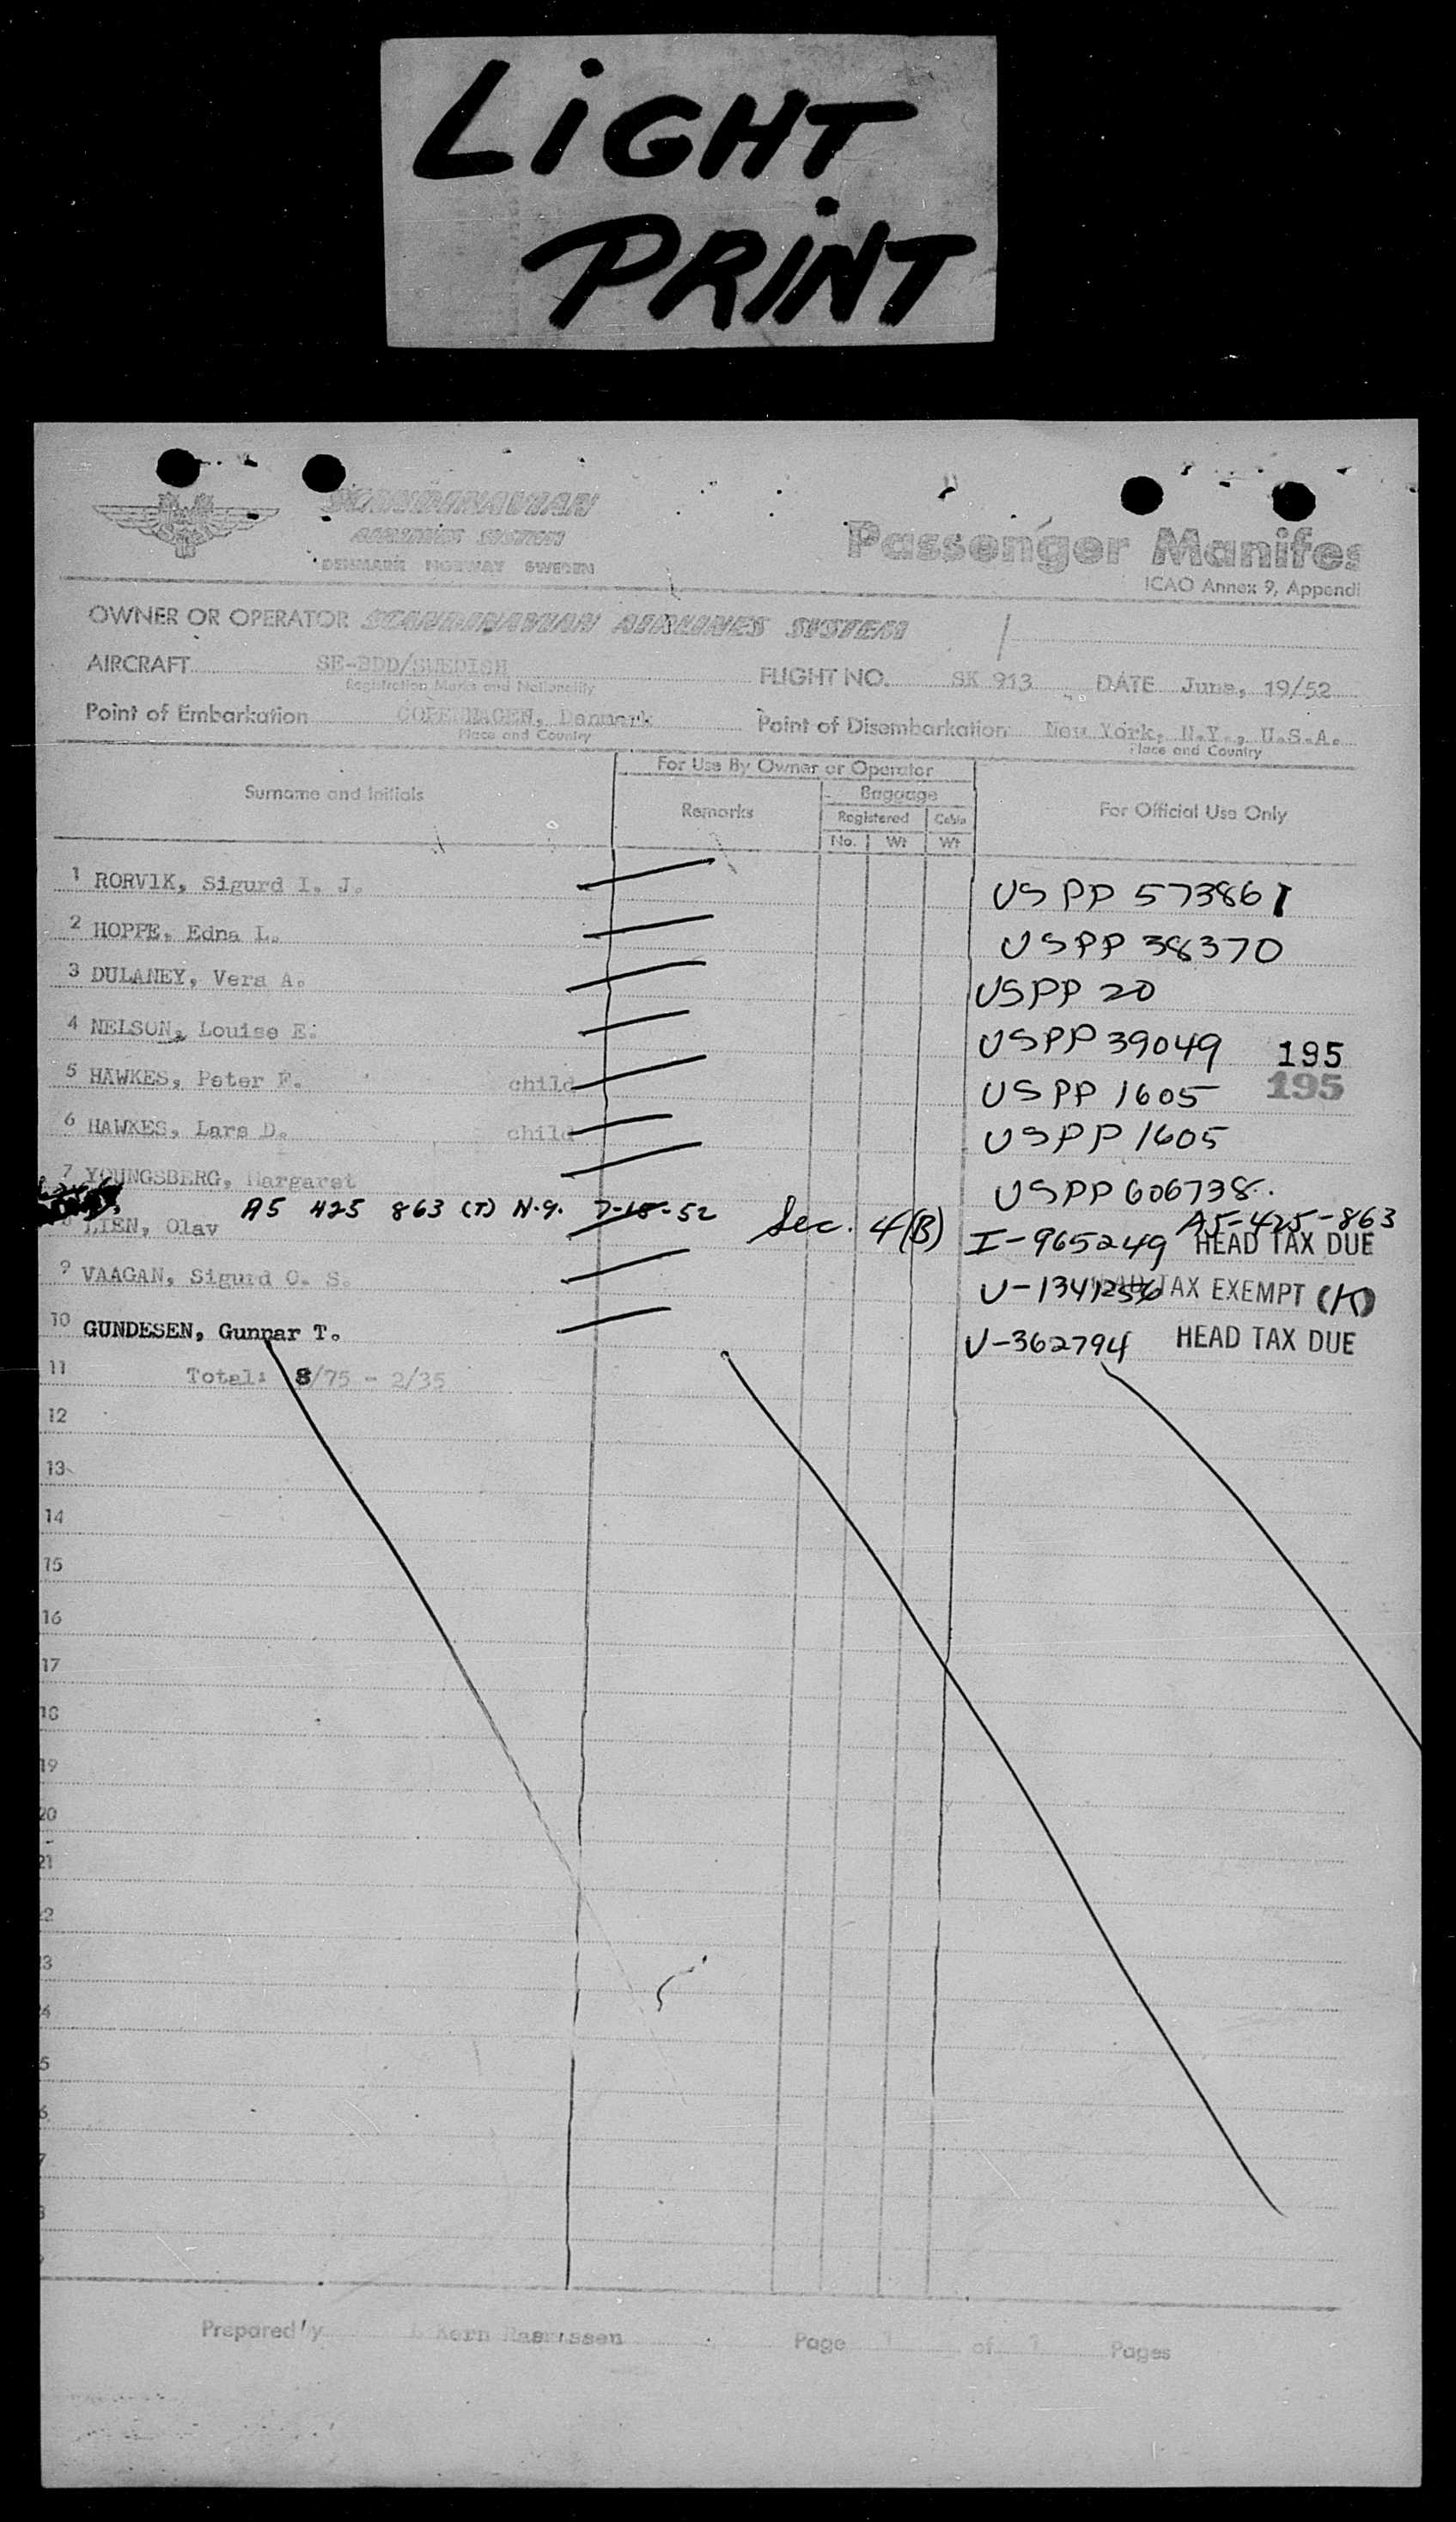 LIGHT
PRINT
SCANDINAVIAN
AIRLINES SYSTEM
DENMARK NORWAY SWEDEN
Passenger Manifes
ICAO Annex 9, Appendi
OWNER OR OPERATOR SCANDINAVIAN AIRLINES SYSTEM
AIRCRAFT SE-BDD/SWEDISH FLIGHT NO. SK 913 DATE June, 19/52
Registration Marks and Nationality
Point of Embarkation COPENHAGEN, Denmark Point of Disembarkation New York, N.Y., U.S.A.
Place and Country Place and Country
For Use By Owner or Operator
Surname and Initials Remarks Baggage For Official Use Only
Registered Cabin
No. Wt Wt
1 RORVIK, Sigurd I. J. USPP 573861
2 HOPPE, Edna L. USPP 38370
3 DULANEY, Vera A. USPP 20
4 NELSON, Louise E. USPP 39049 195
5 HAWKES, Peter F. child USPP 1605 195
6 HAWKES, Lars D. child USPP 1605
7 YOUNGSBERG, Margaret USPP 606738.
A5 425 863 (T) N.Y. 7-18-52 Sec. 4(B) A5-425-863
8 LIEN, Olav I-965249 HEAD TAX DUE
9 VAAGAN, Sigurd O. S. HEAD TAX EXEMPT (K)
10 GUNDESEN, Gunnar T. V-362794 HEAD TAX DUE
11 Total: 8/75 - 2/35
12
13
14
15
16
17
18
19
20
21
2
3
4
5
6
7
8
Prepared by Kern Rasmussen Page 1 of Pages